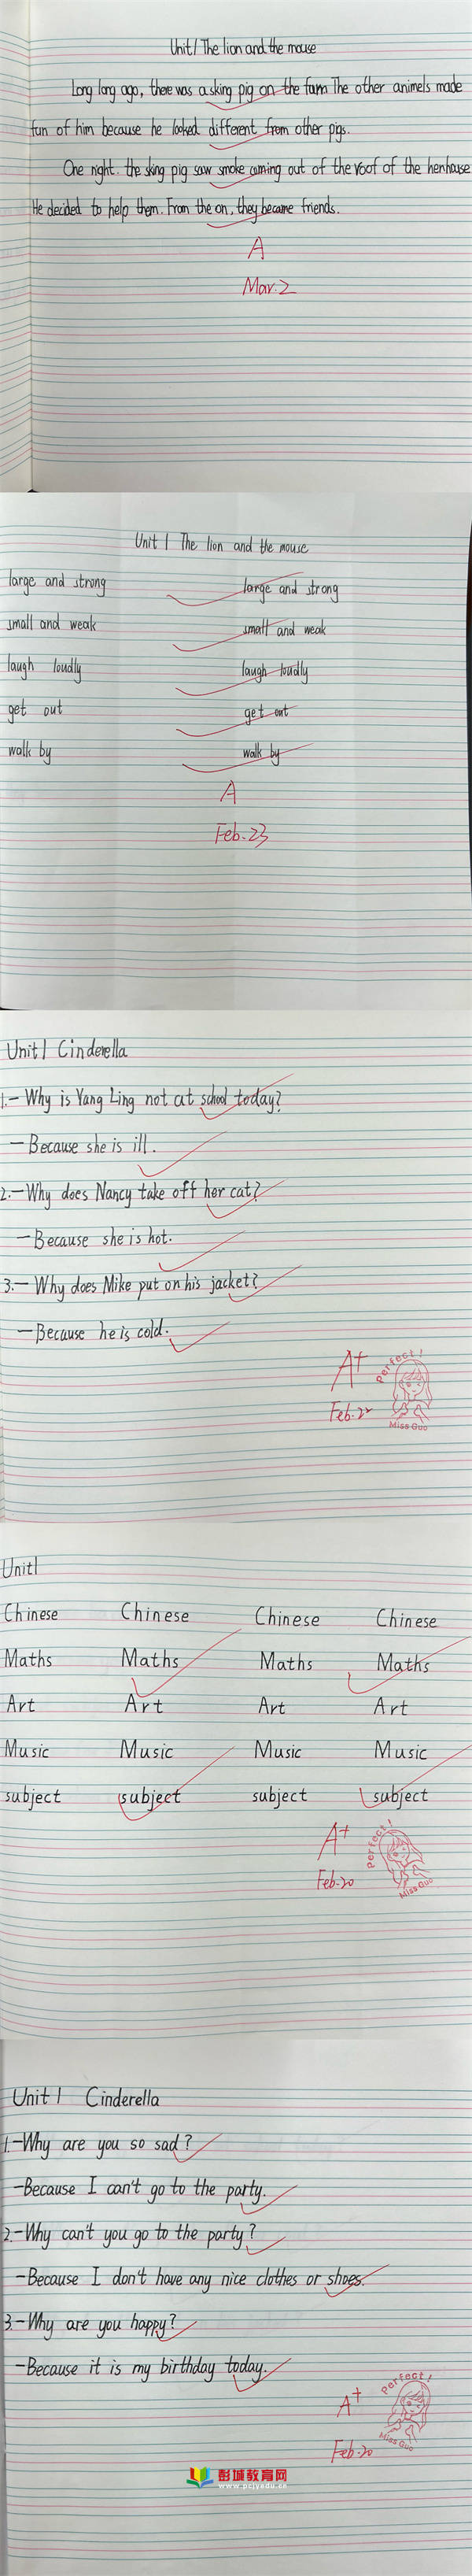 Unit 1 The lion and the mouse
Long long ago, there was a sking pig on the farm The other animels made
fun of him because he looked different from other pigs.
One night. the sking pig saw smoke coming out of the roof of the henhouse
He decided to help them. From the on, they became friends.
A
Mar.2
Unit 1 The lion and the mouse
large and strong large and strong
small and weak small and weak
laugh loudly laugh loudly
get out get out
walk by walk by
A
Feb.23
Unit 1 Cinderella
1.— Why is Yang Ling not at school today?
— Because she is ill.
2.— Why does Nancy take off her cat?
— Because she is hot.
3.— Why does Mike put on his jacket?
— Because he is cold.
A+
Perfect!
Feb.22
Miss Guo
Unit 1
Chinese Chinese Chinese Chinese
Maths Maths Maths Maths
Art Art Art Art
Music Music Music Music
subject subject subject subject
A+
Perfect!
Feb.20
Miss Guo
Unit 1 Cinderella
1.—Why are you so sad?
—Because I can't go to the party.
2.—Why can't you go to the party?
—Because I don't have any nice clothes or shoes.
3.—Why are you happy?
—Because it is my birthday today.
Perfect!
A+
Miss Guo
Feb.20
彭城教育网
www.pcjyedu.cn